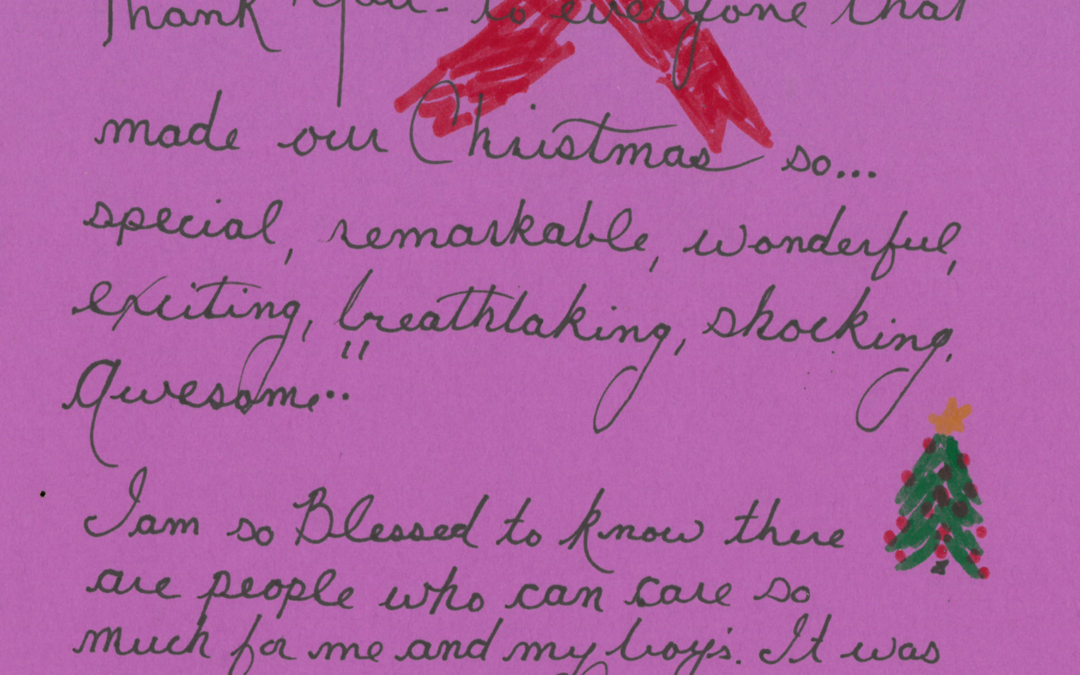 Thank You - to everyone that
made our Christmas so...
special, remarkable, wonderful,
exciting, breathtaking, shocking,
Awesome..."
I am so Blessed to know there
are people who can care so
much for me and my boy's. It was